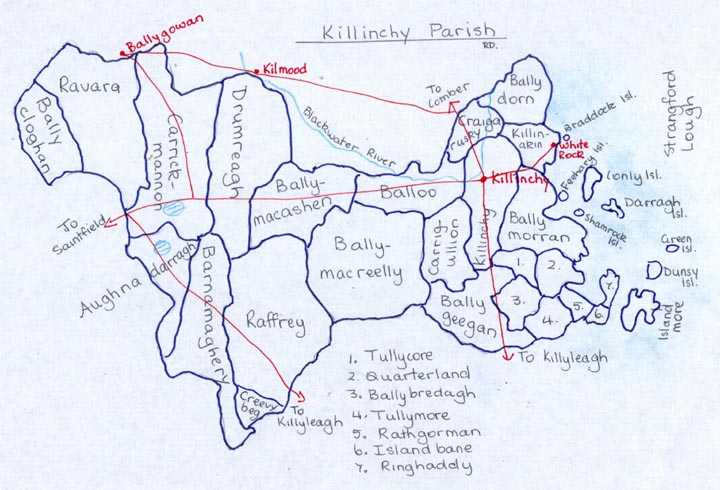 Killinchy Parish
RD.
Ballygowan
Kilmood
To
Comber
Bally
dorn
Ravara
Bally
cloghan
Carrick-
mannon
Drumreagh
Blackwater River
Craiga
rusky
Killin-
akin
Braddock Isl.
White
Rock
Strangford
Lough
Killinchy
Feathary Isl.
Conly Isl.
Darragh
Isl.
Shamrock
Isl.
Green
Isl.
Dunsy
Isl.
Island
more
Bally-
macashen
Balloo
To
Saintfield
Aughna
darragh
Barnamaghery
Raffrey
Bally-
macreelly
Carrig
ullion
Killinchy
Bally
morran
Bally
geegan
1.
2.
3.
4.
5.
6.
7.
Creevy
beg
To
Killyleagh
To Killyleagh
1. Tullycore
2. Quarterland
3. Ballybredagh
4. Tullymore
5. Rathgorman
6. Island bane
7. Ringhaddy